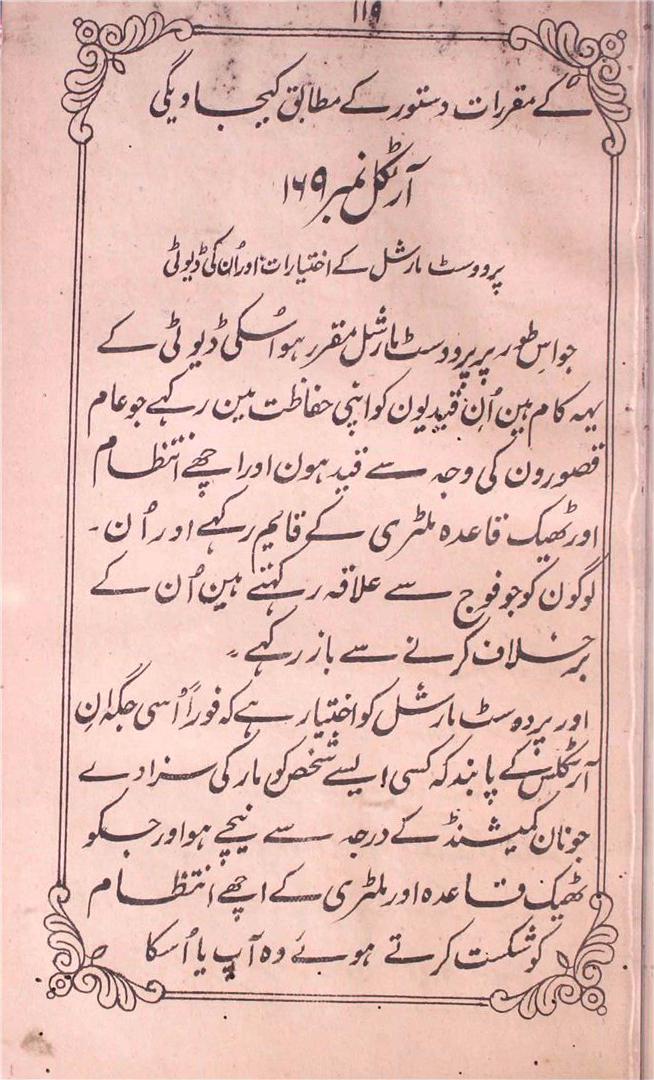 ۱۱۹
کے مقررات دستور کے مطابق کیجاویگی
آرٹکل نمبر ۱۶۹
پرووسٹ مارشل کے اختیارات اور اُن کی ڈیوٹی
جو اس طور پر پرووسٹ مارشل مقرر ہو اُسکی ڈیوٹی کے
یہہ کام ہین اُن قیدیون کو اپنی حفاظت مین رکہے جو عام
قصورون کی وجہ سے قید ہون اور اچھے انتظام
اور ٹھیک قاعدہ ملٹری کے قایم رکہے اور اُن۔
لوگون کو جو فوج سے علاقہ رکہتے ہین اُن کے
برخلاف کرنے سے باز رکہے ۔
اور پرووسٹ مارشل کو اختیار ہے کہ فوراً اُسی جگہ اِن
آرٹکلس کے پابند کہ کسی ایسے شخص کو مار کی سزا دے
جو نان کمیشنڈ کے درجہ سے نیچے ہو اور جسکو
ٹھیک قاعدہ اور ملٹری کے اچھے انتظام
کو شکست کرتے ہوئے وہ آپ یا اُسکا